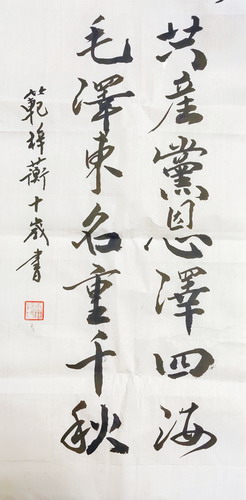 共產黨恩澤四海
毛澤東名重千秋
範梓蘅十歲書